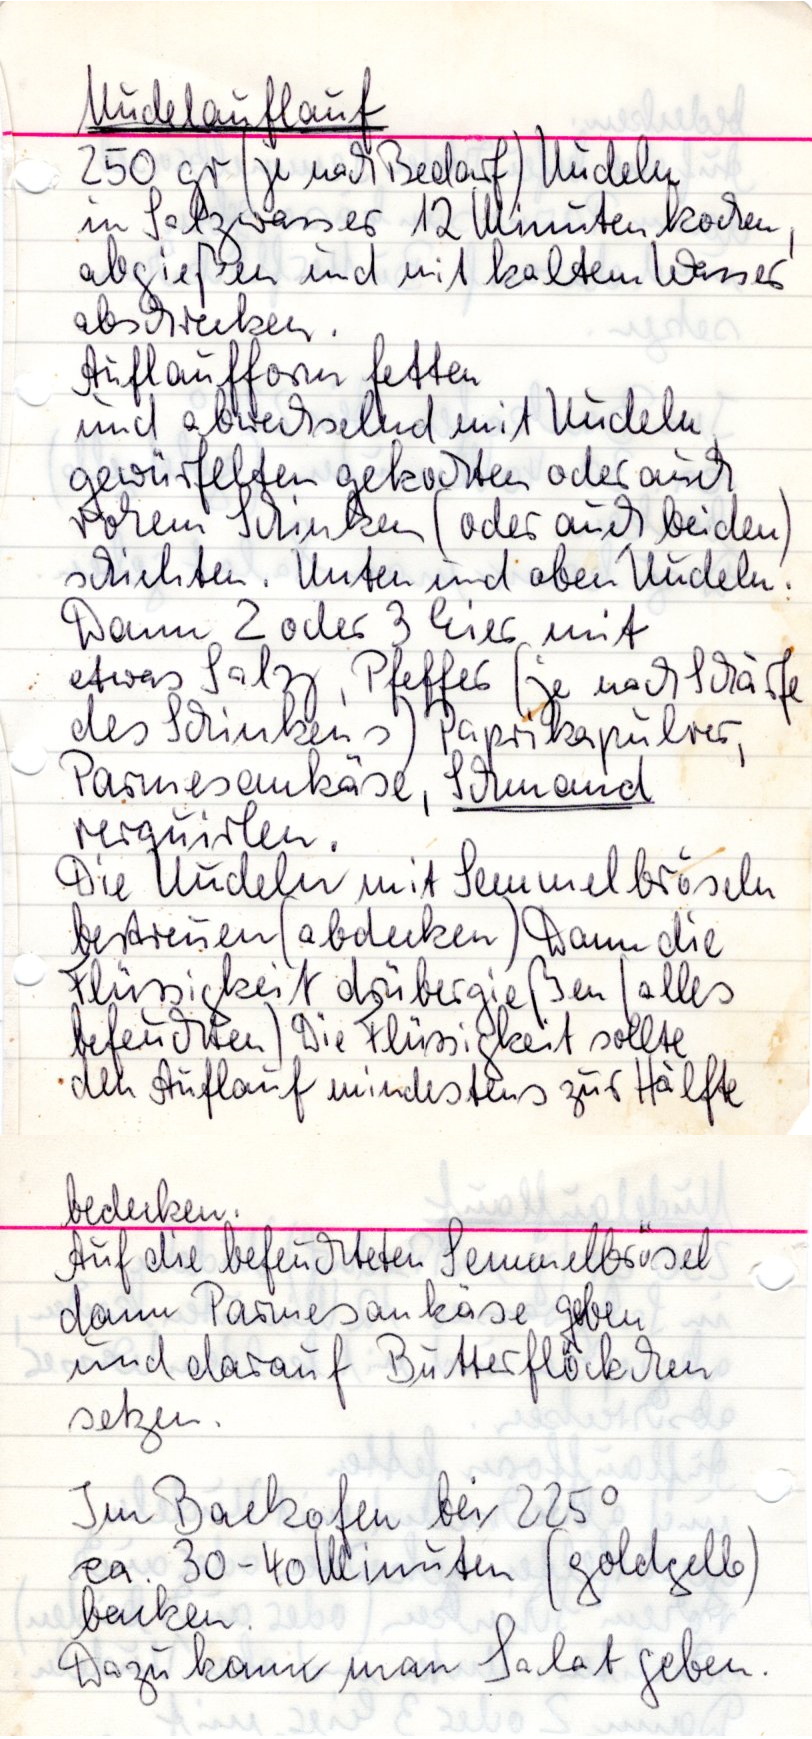 Nudelauflauf
250 gr (je nach Bedarf) Nudeln
in Salzwasser 12 Minuten kochen,
abgießen und mit kaltem Wasser
abschrecken.
Auflaufform fetten
und abwechselnd mit Nudeln,
gewürfelten gekochten oder auch
rohem Schinken (oder auch beiden)
schichten. Unten und oben Nudeln.
Dann 2 oder 3 Eier mit
etwas Salz, Pfeffer (je nach Schärfe
des Schinkens) Paprikapulver,
Parmesankäse, Schmand
verquirlen.
Die Nudeln mit Semmelbröseln
bestreuen (abdecken) Dann die
Flüssigkeit drübergießen (alles
befeuchten) Die Flüssigkeit sollte
den Auflauf mindestens zur Hälfte
bedecken.
Auf die befeuchteten Semmelbrösel
dann Parmesankäse geben
und darauf Butterflöckchen
setzen.
Im Backofen bei 225°
ca. 30-40 Minuten (goldgelb)
backen.
Dazu kann man Salat geben.